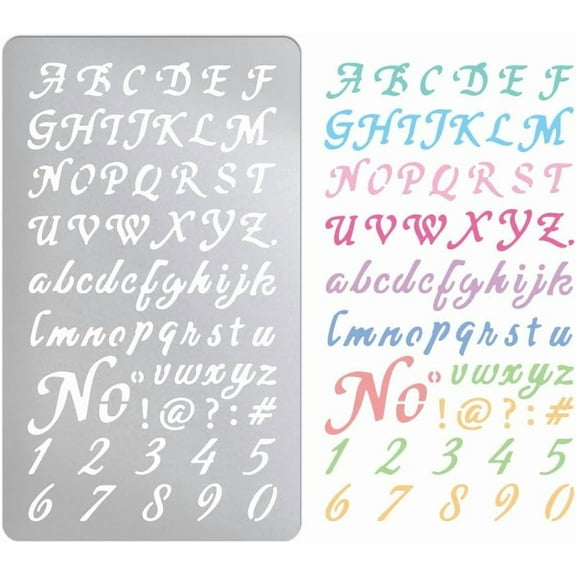 ABCDEF
GHIJKLM
NOPQRST
UVWXYZ.
abcdefghijk
lmnopqrstu
No° vwxyz
!@?:#
12345
67890
ABCDEF
GHIJKLM
NOPQRST
UVWXYZ.
abcdefghijk
lmnopqrstu
No° vwxyz
!@?:#
12345
67890